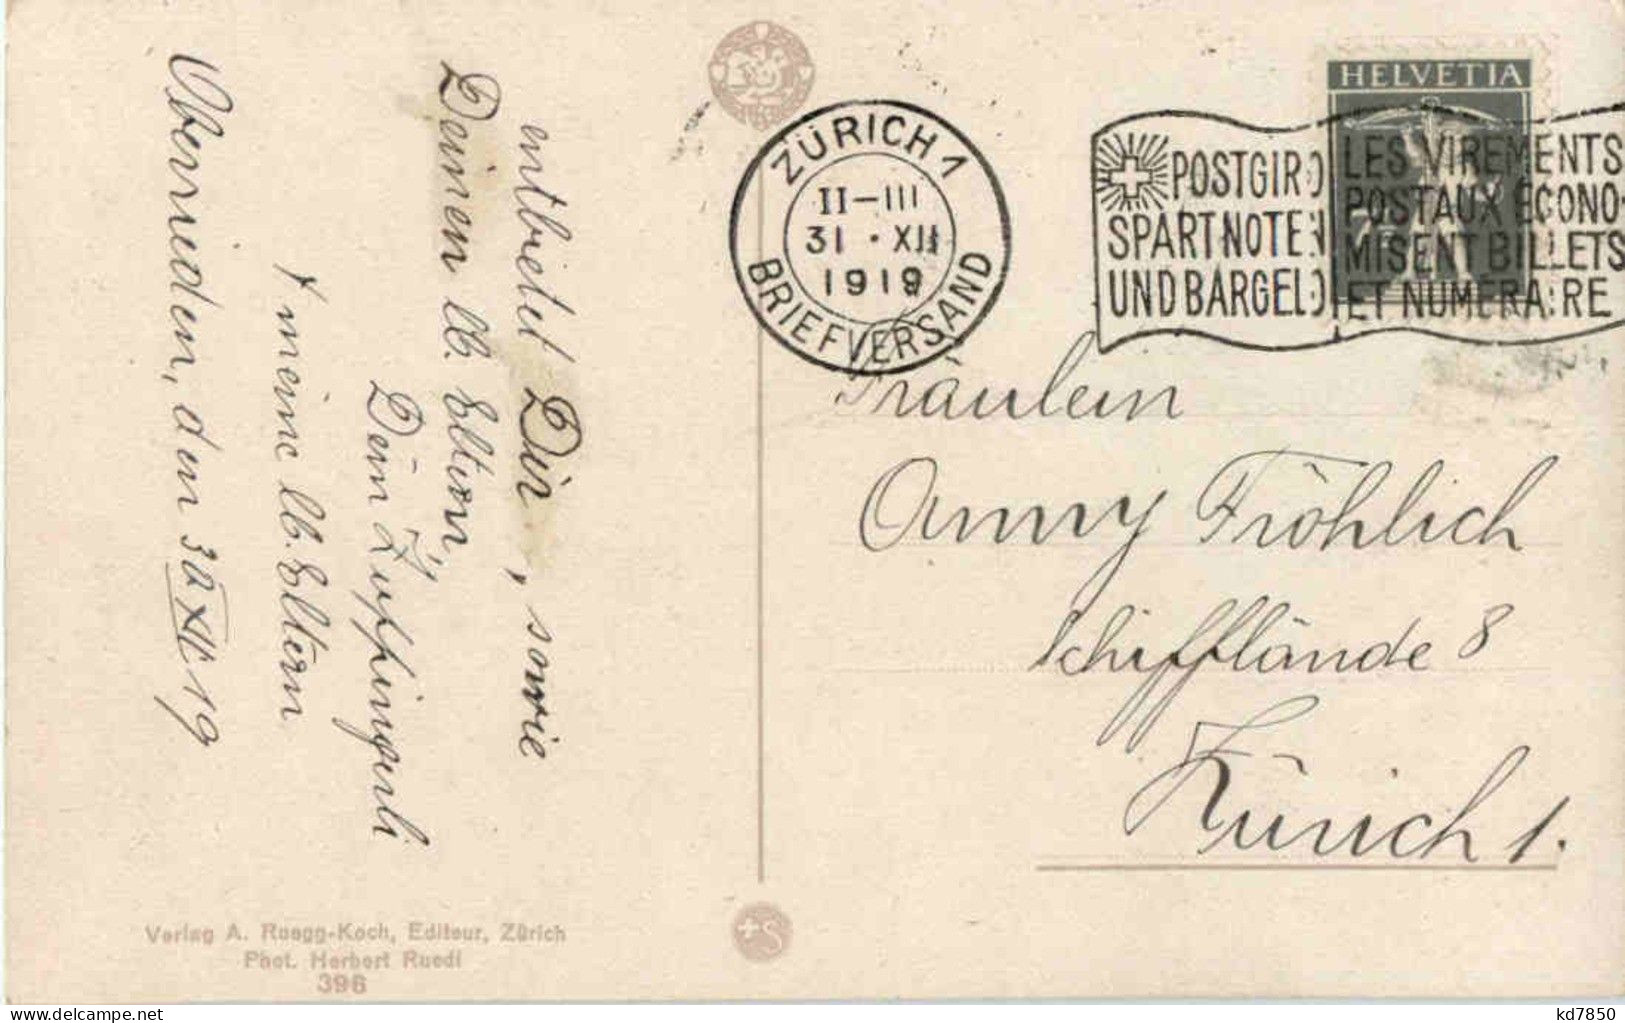 entbietet Dir, sowie
Deinen lb. Eltern,
Dein Zuppingerli
+ meine lb. Eltern
Oberrieden, den 30 XII 19
Verlag A. Ruegg-Koch, Editeur, Zürich
Phot. Herbert Ruedi
396
ZÜRICH 1
II-III
31·XII
1919
BRIEFVERSAND
HELVETIA
POSTGIRO
SPART NOTEN
UND BARGELD
LES VIREMENTS
POSTAUX ÉCONO-
MISENT BILLETS
ET NUMERAIRE
Fräulein
Anny Fröhlich
Schifflände 8
Zürich 1.
kd7850